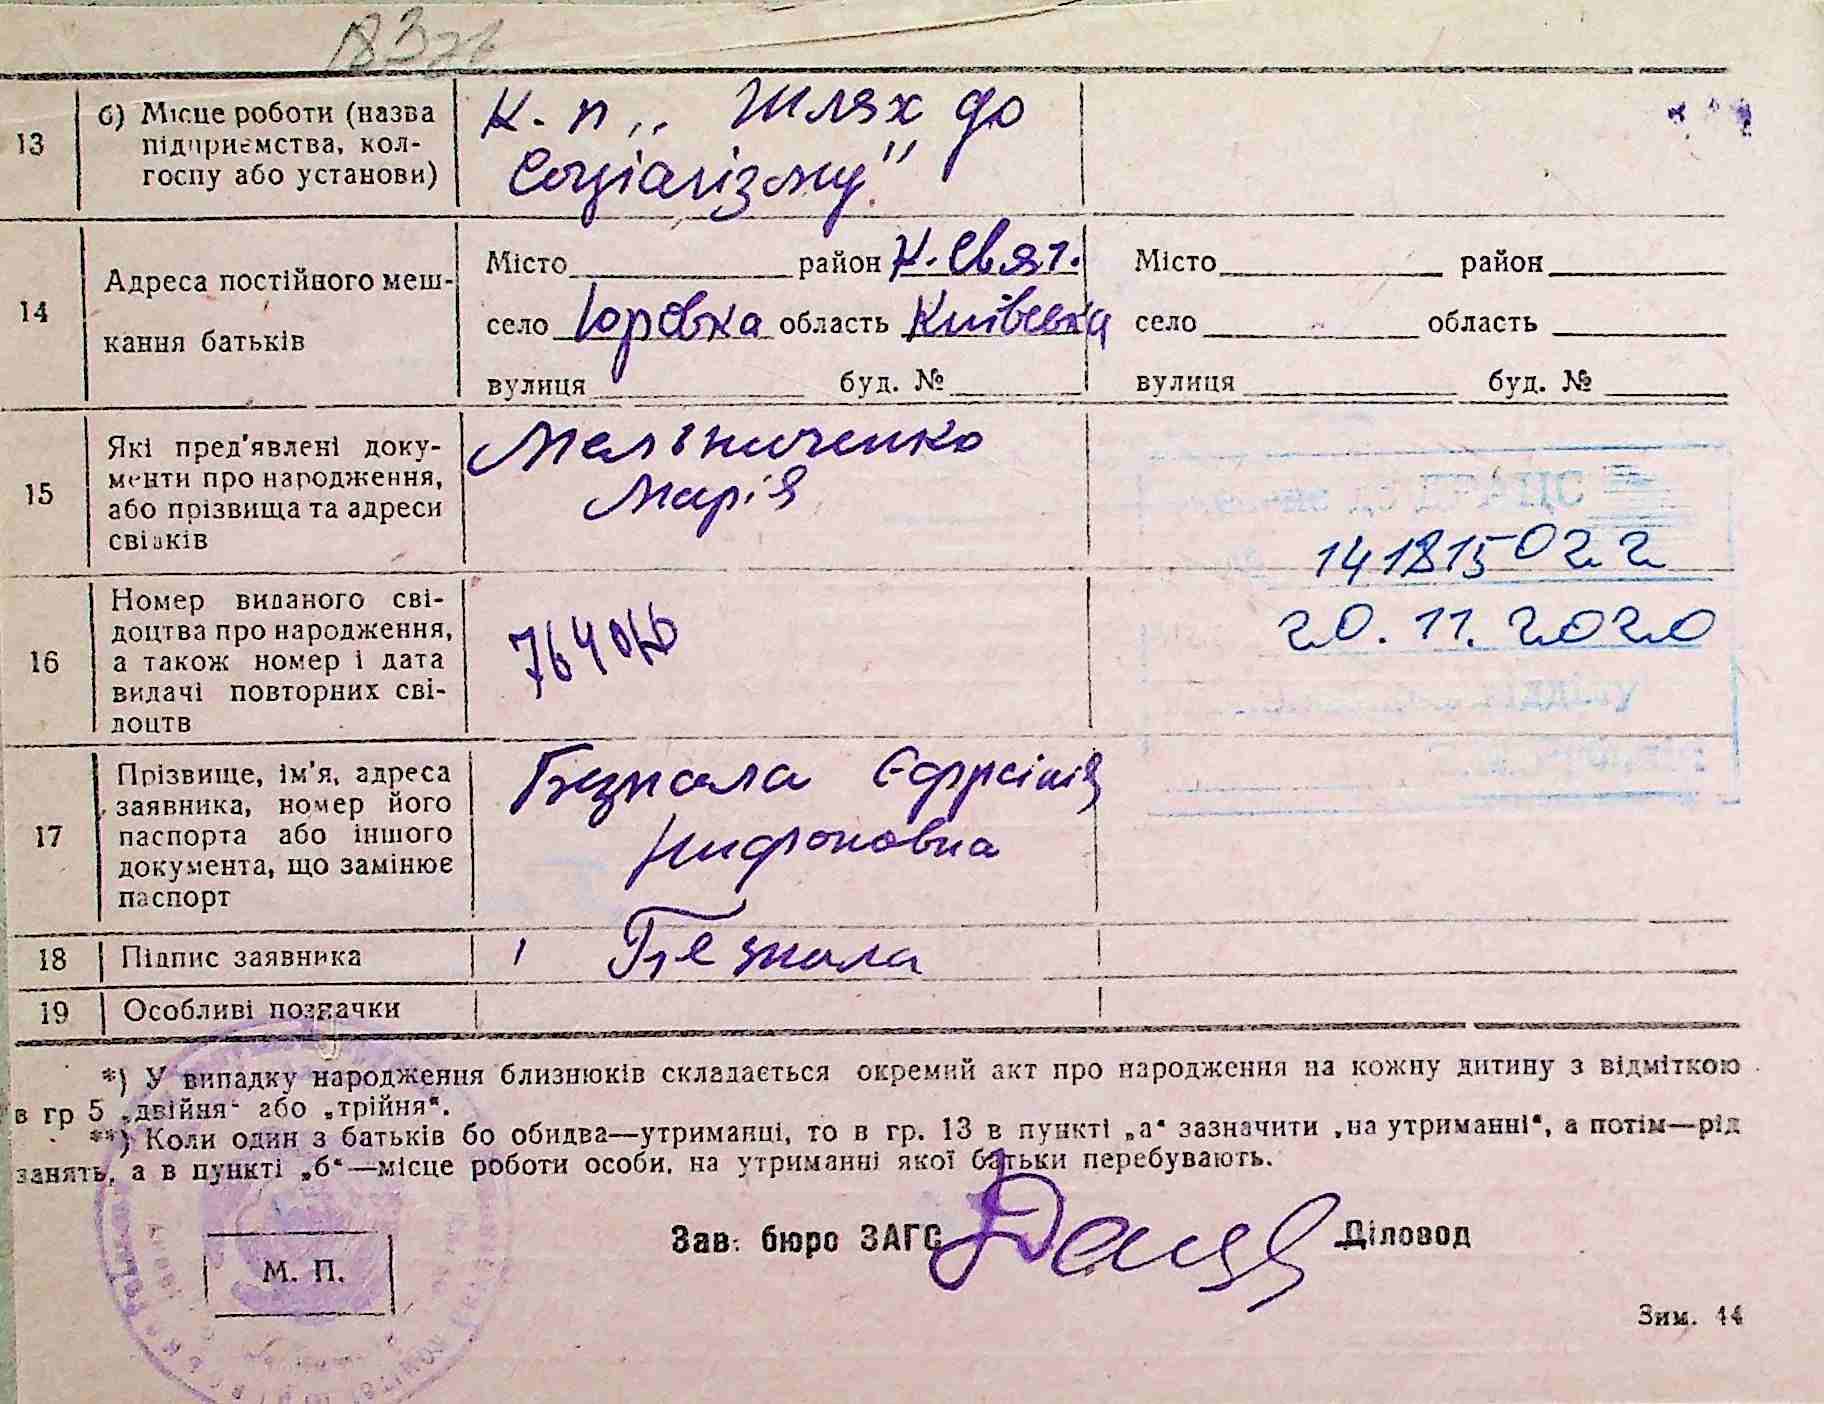 13
б) Місце роботи (назва
підприємства, кол-
госпу або установи)
к-п „Шлях до
Соціалізму"
14
Адреса постійного меш-
кання батьків
Місто район К. Свят.
село Юровка область Київська
вулиця буд. №
Місто район
село область
вулиця буд. №
15
Які пред'явлені доку-
менти про народження,
або прізвища та адреси
свідків
Мельниченко
Марія
14181502 2
20.11.2020
16
Номер виданого сві-
доцтва про народження,
а також номер і дата
видачі повторних сві-
доцтв
17
Прізвище, ім'я, адреса
заявника, номер його
паспорта або іншого
документа, що замінює
паспорт
Безпала Єфросінія
Нифоновна
18
Підпис заявника
Безпала
19
Особливі позначки
*) У випадку народження близнюків складається окремий акт про народження на кожну дитину з відміткою
в гр 5 „двійня" або „трійня".
**) Коли один з батьків бо обидва—утриманці, то в гр. 13 в пункті „а" зазначити „на утриманні", а потім—рід
занять, а в пункті „б"—місце роботи особи, на утриманні якої батьки перебувають.
Зав. бюро ЗАГС
Діловод
М. П.
Зим. 44